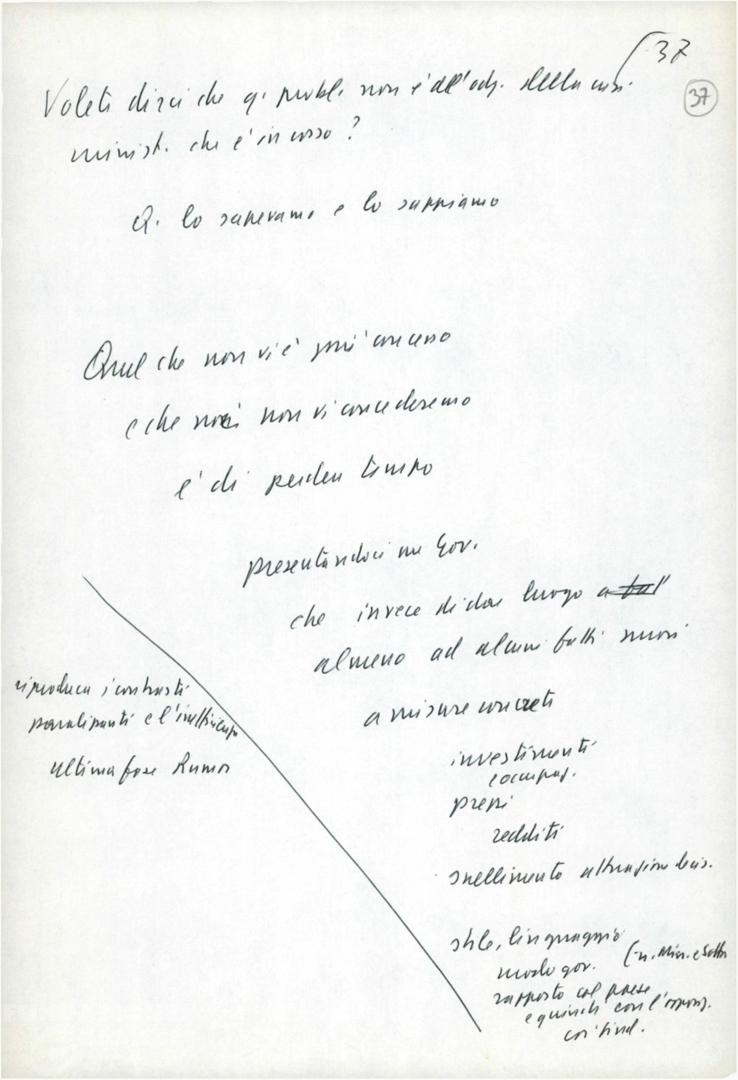 37
37
Volete dirci che q. probl. non è all'odg. della crisi
minist. che è in corso?
Q. lo sapevamo e lo sappiamo
Quel che non vi è più concesso
e che noi non vi concederemo
è di perdere tempo
presentandoci un Gov.
che invece di dar luogo a
almeno ad alcuni fatti nuovi
a misure concrete
investimenti
occupaz.
prezzi
redditi
snellimento attuazione
riproduca i contrasti
paralizzanti e l'
ultima fase Rumor
stile, linguaggio
modo gov. (n. Min. e Sott.
rapporto col paese
e quindi con l'opposiz.
coi sind.